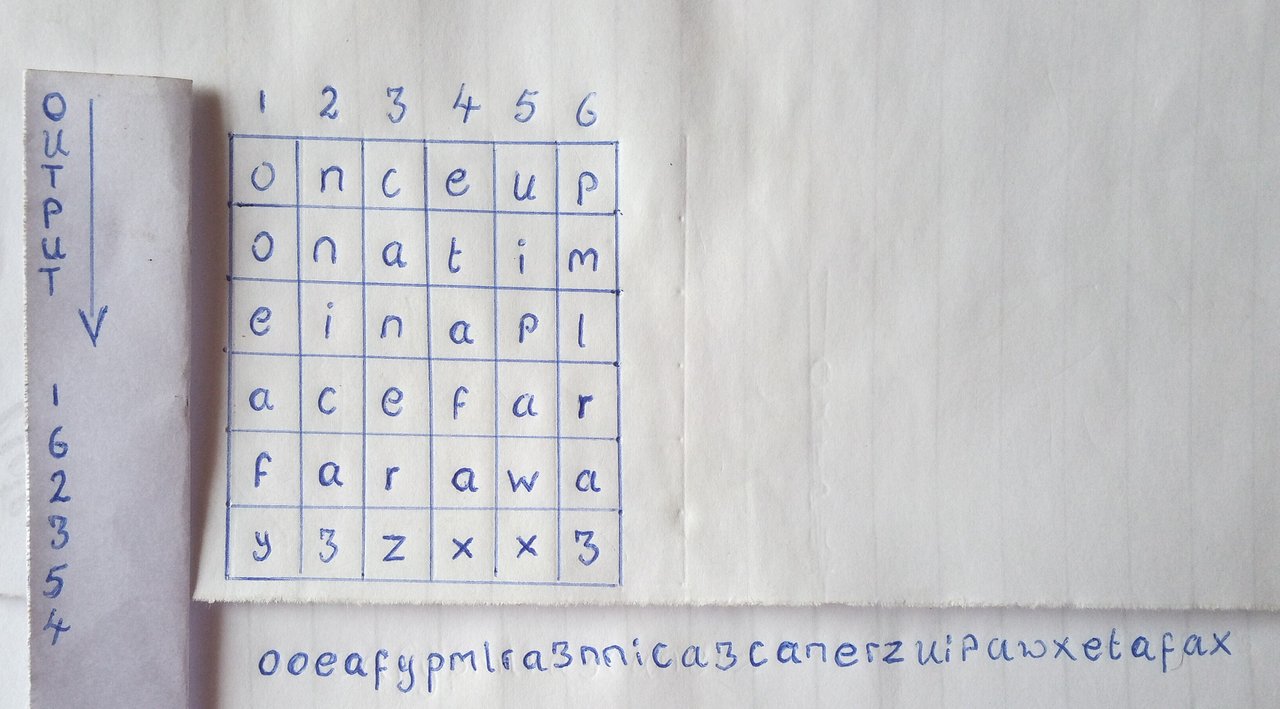 OUTPUT
1
6
2
3
5
4
1 2 3 4 5 6
o n c e u p
o n a t i m
e i n a p l
a c e f a r
f a r a w a
y 3 z x x 3
ooeafypmlra3nnica3canerzuipawxetafax